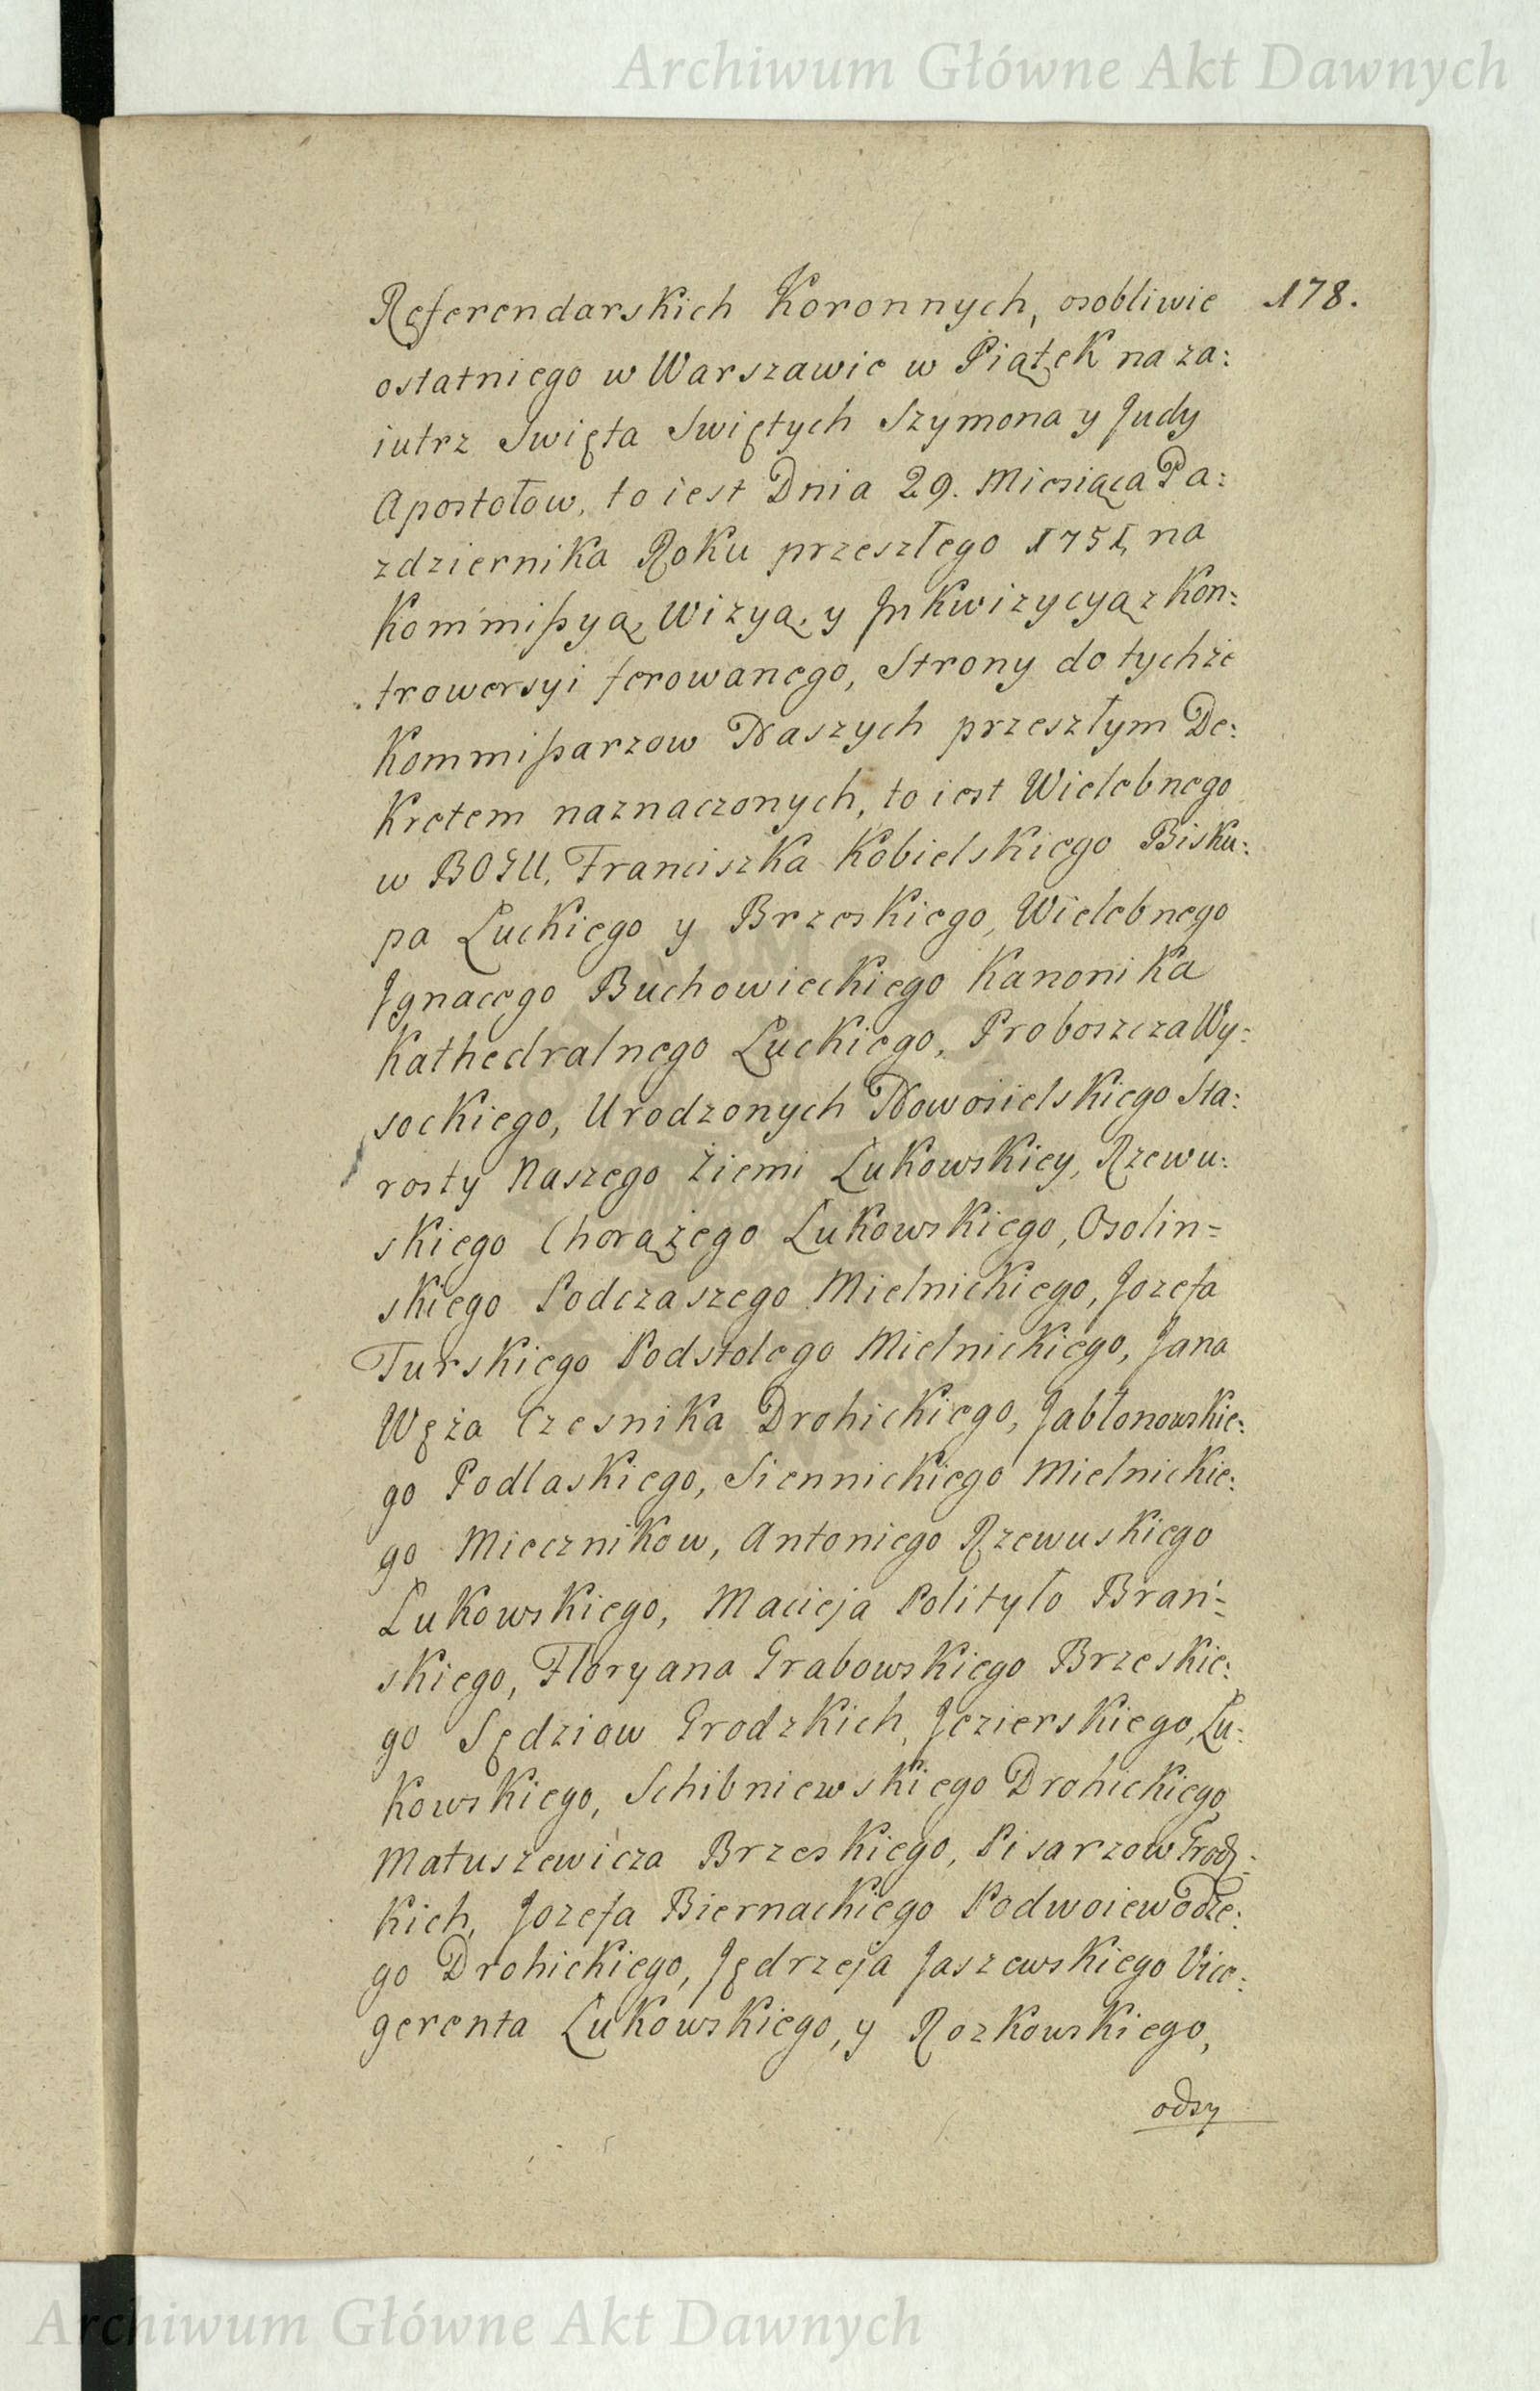 Archiwum Główne Akt Dawnych
178.
Referendarskich Koronnych, osobliwie
ostatniego w Warszawie w Piątek na za:
iutrz Swięta Swiętych Szymona y Judy
Apostołow, to iest Dnia 29. Miesiąca Pa:
zdziernika Roku przeszłego 1751, na
Kommißyą, Wizyą, y Jnkwizycyą z Kon:
trowersyi ferowanego, Strony do tychże
Kommißarzow Naszych przeszłym De:
kretem naznaczonych, to iest Wielebnego
w BOGU, Franciszka Kobielskiego Bisku:
pa Luckiego y Brzeskiego, Wielebnego
Jgnacego Buchowieckiego Kanonika
Kathedralnego Luckiego, Proboszcza Wy:
sockiego, Urodzonych Nowosielskiego Sta:
rosty Naszego Ziemi Lukowskiey, Rzewu:
skiego Chorążego Lukowskiego, Osolin=
skiego Podczaszego Mielnickiego, Jozefa
Turskiego Podstolego Mielnickiego, Jana
Węża Czesnika Drohickiego, Jabłonowskie:
go Podlaskiego, Siennickiego Mielnickie:
go Miecznikow, Antoniego Rzewuskiego
Lukowskiego, Macieja Polityło Brań=
skiego, Floryana Grabowskiego Brzeskie:
go Sędziow Grodzkich, Jezierskiego, Lu:
kowskiego, Schibniewskiego Drohickiego,
Matuszewicza Brzeskiego, Pisarzow Grodz:
kich, Jozefa Biernackiego Podwoiewodze:
go Drohickiego, Jędrzeja Jaszewskiego Vice:
gerenta Lukowskiego, y Rozkowskiego,
odsy
Archiwum Główne Akt Dawnych